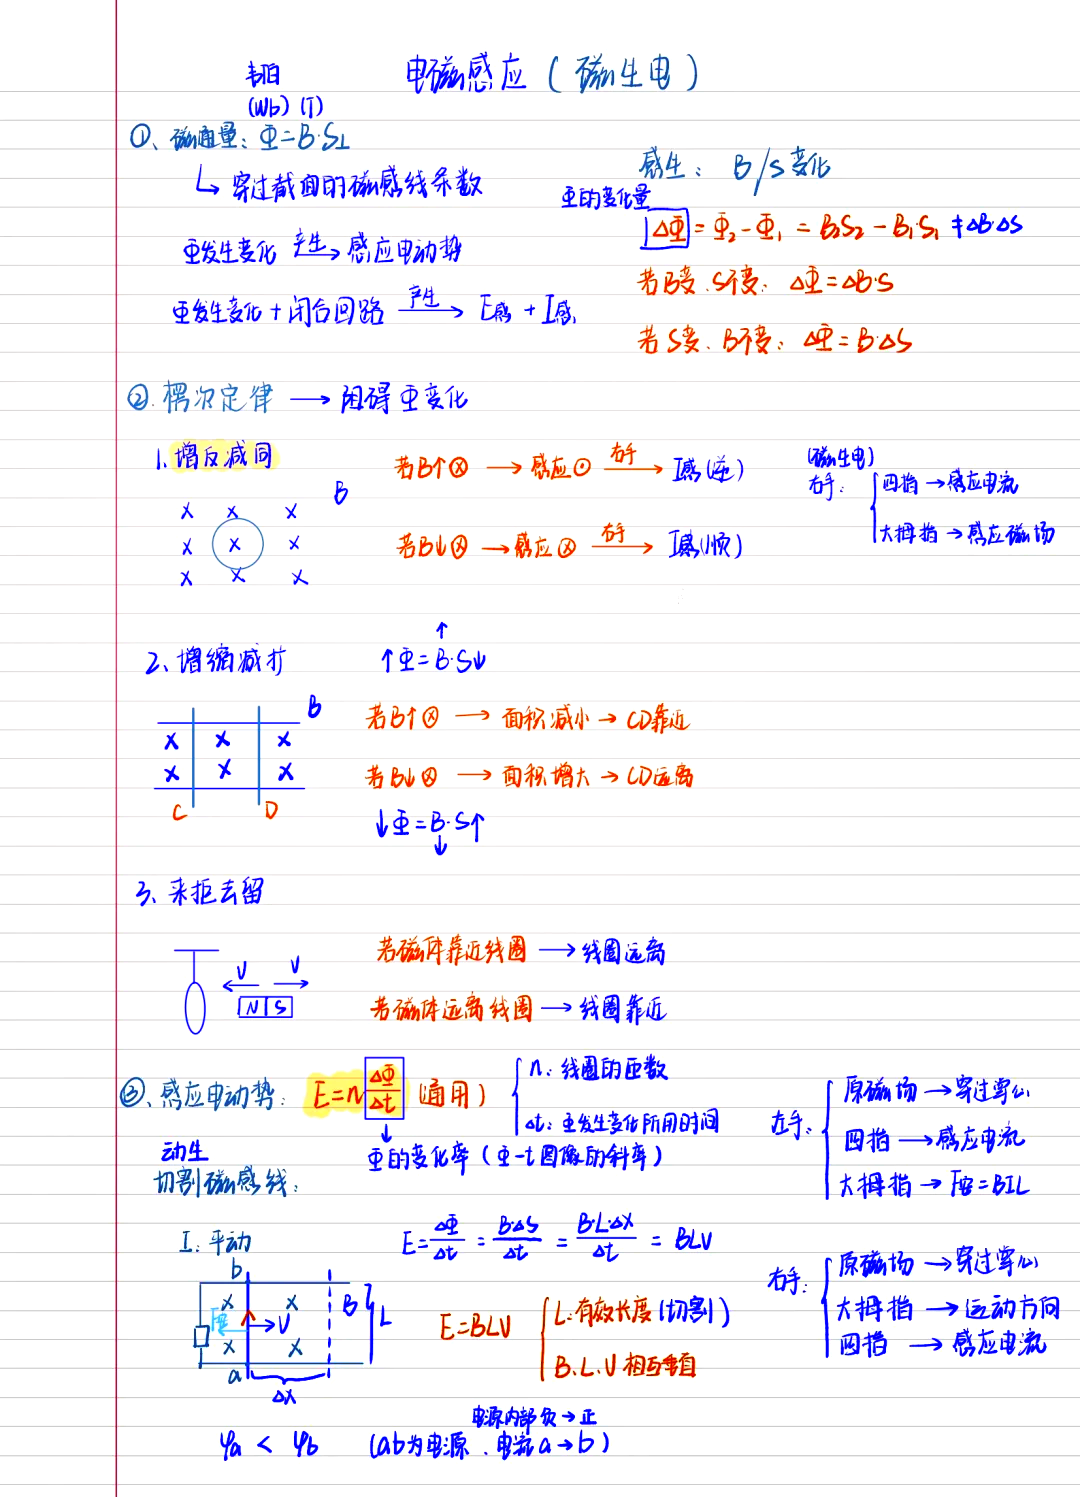 电磁感应（磁生电）
韦伯
(Wb) (T)
①、磁通量：Φ=B·S⊥
↳ 穿过截面的磁感线条数
Φ发生变化 产生→ 感应电动势
Φ发生变化+闭合回路 产生→ E感 + I感
感生：B/S变化
Φ的变化量
ΔΦ = Φ₂-Φ₁ = B₂S₂-B₁·S₁ ≠ΔB·ΔS
若B变、S不变：ΔΦ=ΔB·S
若S变、B不变：ΔΦ=B·ΔS
②. 楞次定律 → 阻碍Φ变化
1、增反减同
B
× × ×
× × ×
× × ×
若B↑⊗ → 感应⊙ 右手→ I感(逆)
若B↓⊗ → 感应⊗ 右手→ I感(顺)
(磁生电)
右手：
四指→感应电流
大拇指→感应磁场
2、增缩减扩
↑Φ=B↑·S↓
B
× × ×
× × ×
C D
若B↑⊗ → 面积减小→CD靠近
若B↓⊗ → 面积增大→CD远离
↓Φ=B↓·S↑
3、来拒去留
V V
N S
若磁体靠近线圈→线圈远离
若磁体远离线圈→线圈靠近
③、感应电动势：E=n ΔΦ/Δt (通用)
n：线圈的匝数
Δt：Φ发生变化所用时间
Φ的变化率（Φ-t图像的斜率）
动生
切割磁感线：
左手：
原磁场→穿过掌心
四指→感应电流
大拇指→F安=BIL
I：平动
E=ΔΦ/Δt = B·ΔS/Δt = B·L·Δx/Δt = BLV
b
× ×
B
L
F安
V
× ×
a
Δx
E=BLV
L：有效长度(切割)
B、L、V相互垂直
右手：
原磁场→穿过掌心
大拇指→运动方向
四指→感应电流
电源内部负→正
φa < φb (ab为电源、电流a→b)